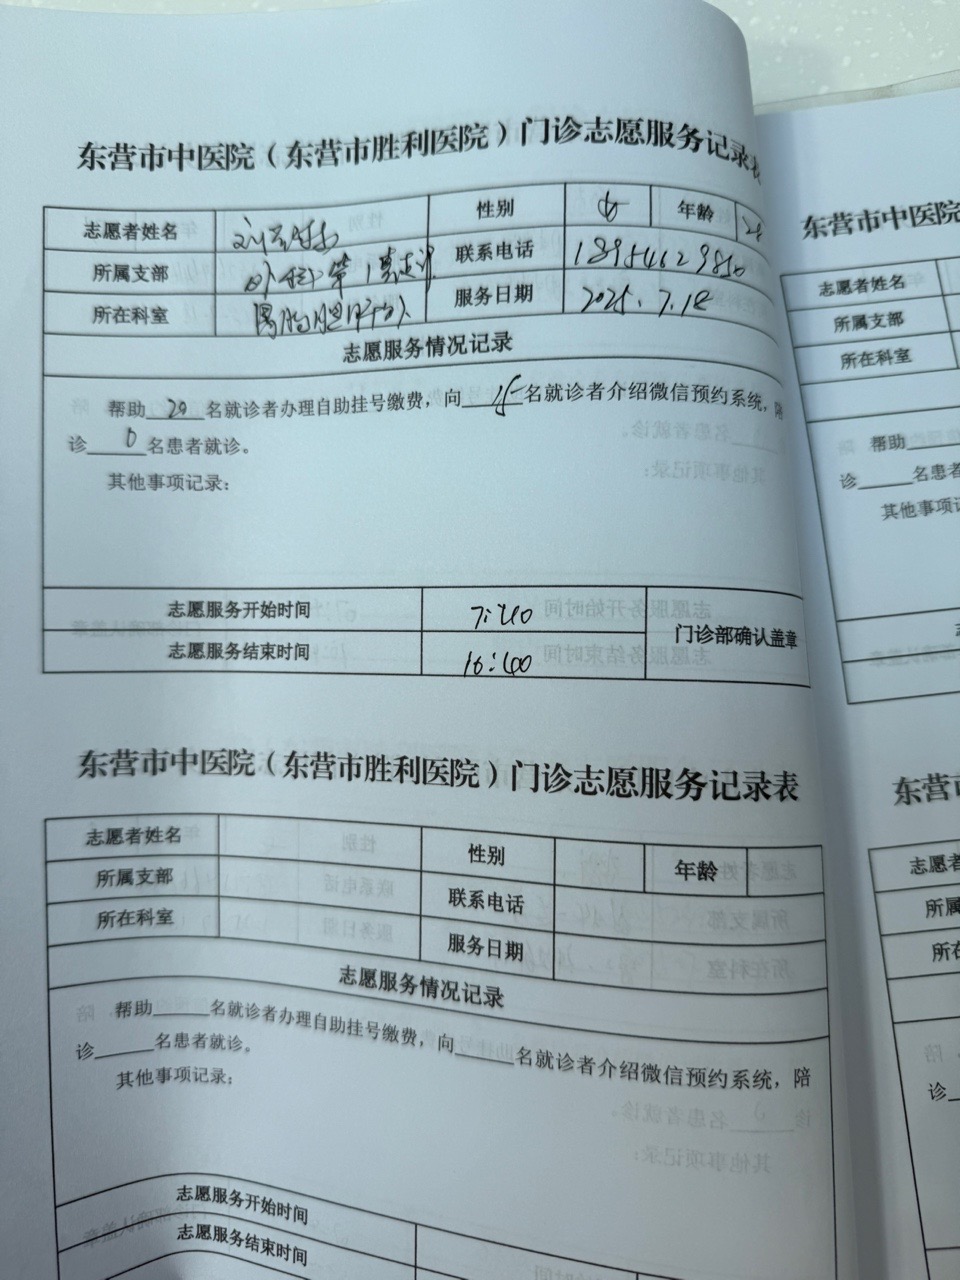 东营市中医院（东营市胜利医院）门诊志愿服务记录表
志愿者姓名 性别 女 年龄
所属支部 外科第1党支部 联系电话 18954629850
所在科室 胃肠 服务日期 2025.7.18
志愿服务情况记录
帮助 20 名就诊者办理自助挂号缴费，向 15 名就诊者介绍微信预约系统，陪
诊 0 名患者就诊。
其他事项记录：
志愿服务开始时间 7:40 门诊部确认盖章
志愿服务结束时间 10:40
东营市中医院（东营市胜利医院）门诊志愿服务记录表
志愿者姓名 性别 年龄
所属支部 联系电话
所在科室 服务日期
志愿服务情况记录
帮助______名就诊者办理自助挂号缴费，向______名就诊者介绍微信预约系统，陪
诊______名患者就诊。
其他事项记录：
志愿服务开始时间
志愿服务结束时间
东营市中医院
志愿者姓名
所属支部
所在科室
帮助
诊______名患者
其他事项记
东营市
志愿者
所属
所在
诊